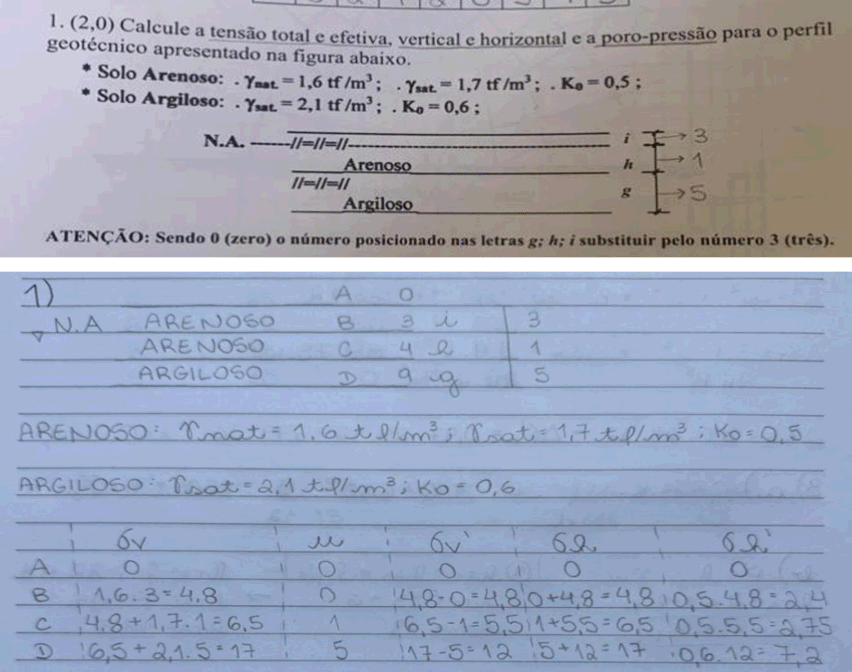 1. (2,0) Calcule a tensão total e efetiva, vertical e horizontal e a poro-pressão para o perfil
geotécnico apresentado na figura abaixo.
* Solo Arenoso: . γnat. = 1,6 tf /m³ ; . γsat. = 1,7 tf /m³ ; . K₀ = 0,5 ;
* Solo Argiloso: . γsat. = 2,1 tf /m³ ; . K₀ = 0,6 ;
N.A. ------//=//=//------ i → 3
Arenoso h → 1
//=//=// g → 5
Argiloso
ATENÇÃO: Sendo 0 (zero) o número posicionado nas letras g; h; i substituir pelo número 3 (três).
1) A 0
N.A ARENOSO B 3 i 3
ARENOSO C 4 h 1
ARGILOSO D 9 g 5
ARENOSO: γnat = 1,6 tf/m³ ; γsat = 1,7 tf/m³ ; Ko = 0,5
ARGILOSO: γsat = 2,1 tf/m³ ; Ko = 0,6
σv u σv' σh σh'
A 0 0 0 0 0
B 1,6 . 3 = 4,8 0 4,8 - 0 = 4,8 0 + 4,8 = 4,8 0,5 . 4,8 = 2,4
C 4,8 + 1,7 . 1 = 6,5 1 6,5 - 1 = 5,5 1 + 5,5 = 6,5 0,5 . 5,5 = 2,75
D 6,5 + 2,1 . 5 = 17 5 17 - 5 = 12 5 + 12 = 17 0,6 . 12 = 7,2